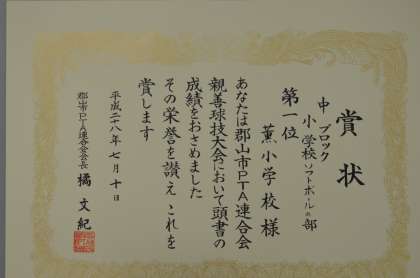 賞状
中ブロック
小学校ソフトボールの部
第一位
薫小学校様
あなたは郡山市PTA連合会
親善球技大会において頭書の
成績をおさめました
その栄誉を讃えこれを
賞します
平成二八年七月十日
郡山市PTA連合会会長
橘文紀